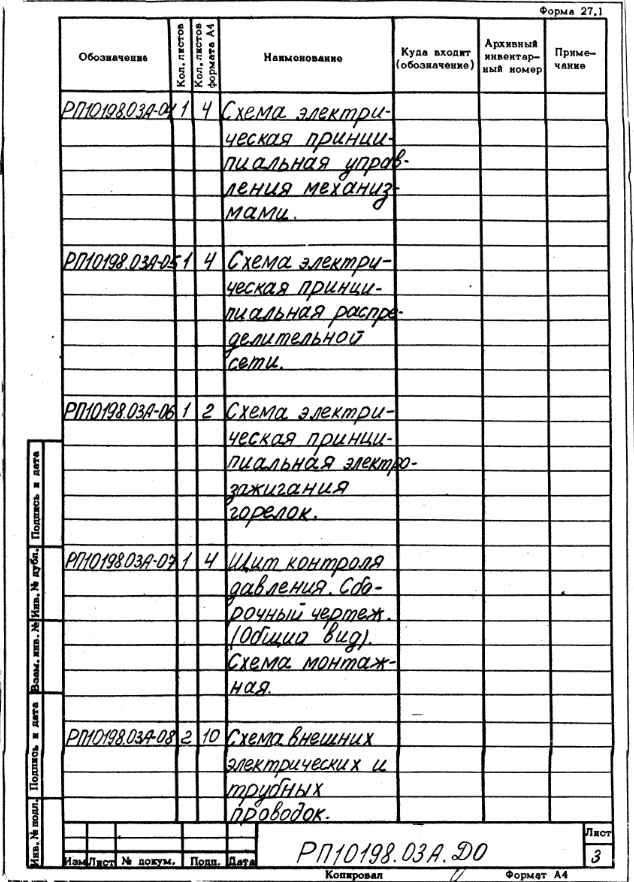 Форма 27.1
Обозначение Кол. листов Кол. листов формата А4 Наименование Куда входит (обозначение) Архивный инвентар- ный номер Приме- чание
РП10198.03А-04 1 4 Схема электри-
ческая принци-
пиальная управ-
ления механиз-
мами.
РП10198.03А-05 1 4 Схема электри-
ческая принци-
пиальная распре-
делительной
сети.
РП10198.03А-06 1 2 Схема электри-
ческая принци-
пиальная электро-
зажигания
горелок.
РП10198.03А-07 1 4 Щит контроля
давления. Сбо-
рочный чертеж.
(Общий вид).
Схема монтаж-
ная.
РП10198.03А-08 2 10 Схема внешних
электрических и
трубных
проводок.
Инв. № подл. Подпись и дата Взам. инв. № Инв. № дубл. Подпись и дата
Изм Лист № докум. Подп. Дата
РП10198.03А.ДО
Лист
3
Копировал Формат А4